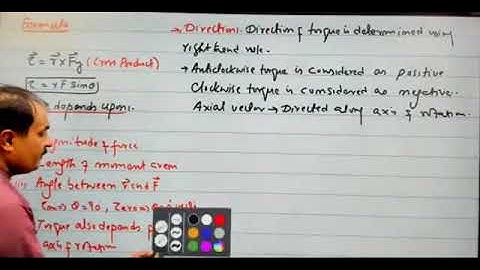 Formula
τ⃗ = r⃗ x F⃗ (Cross Product)
τ = rF Sinθ
depends upon:
magnitude of force
Length of moment arm
Angle between r⃗ and F⃗
θ = 90,
Torque also depends
axis of rotation
→ Direction:- Direction of torque is determined using
right hand rule.
→ Anticlockwise torque is considered as positive
Clockwise torque is considered as negative.
Axial vector → Directed along axis of rotation.